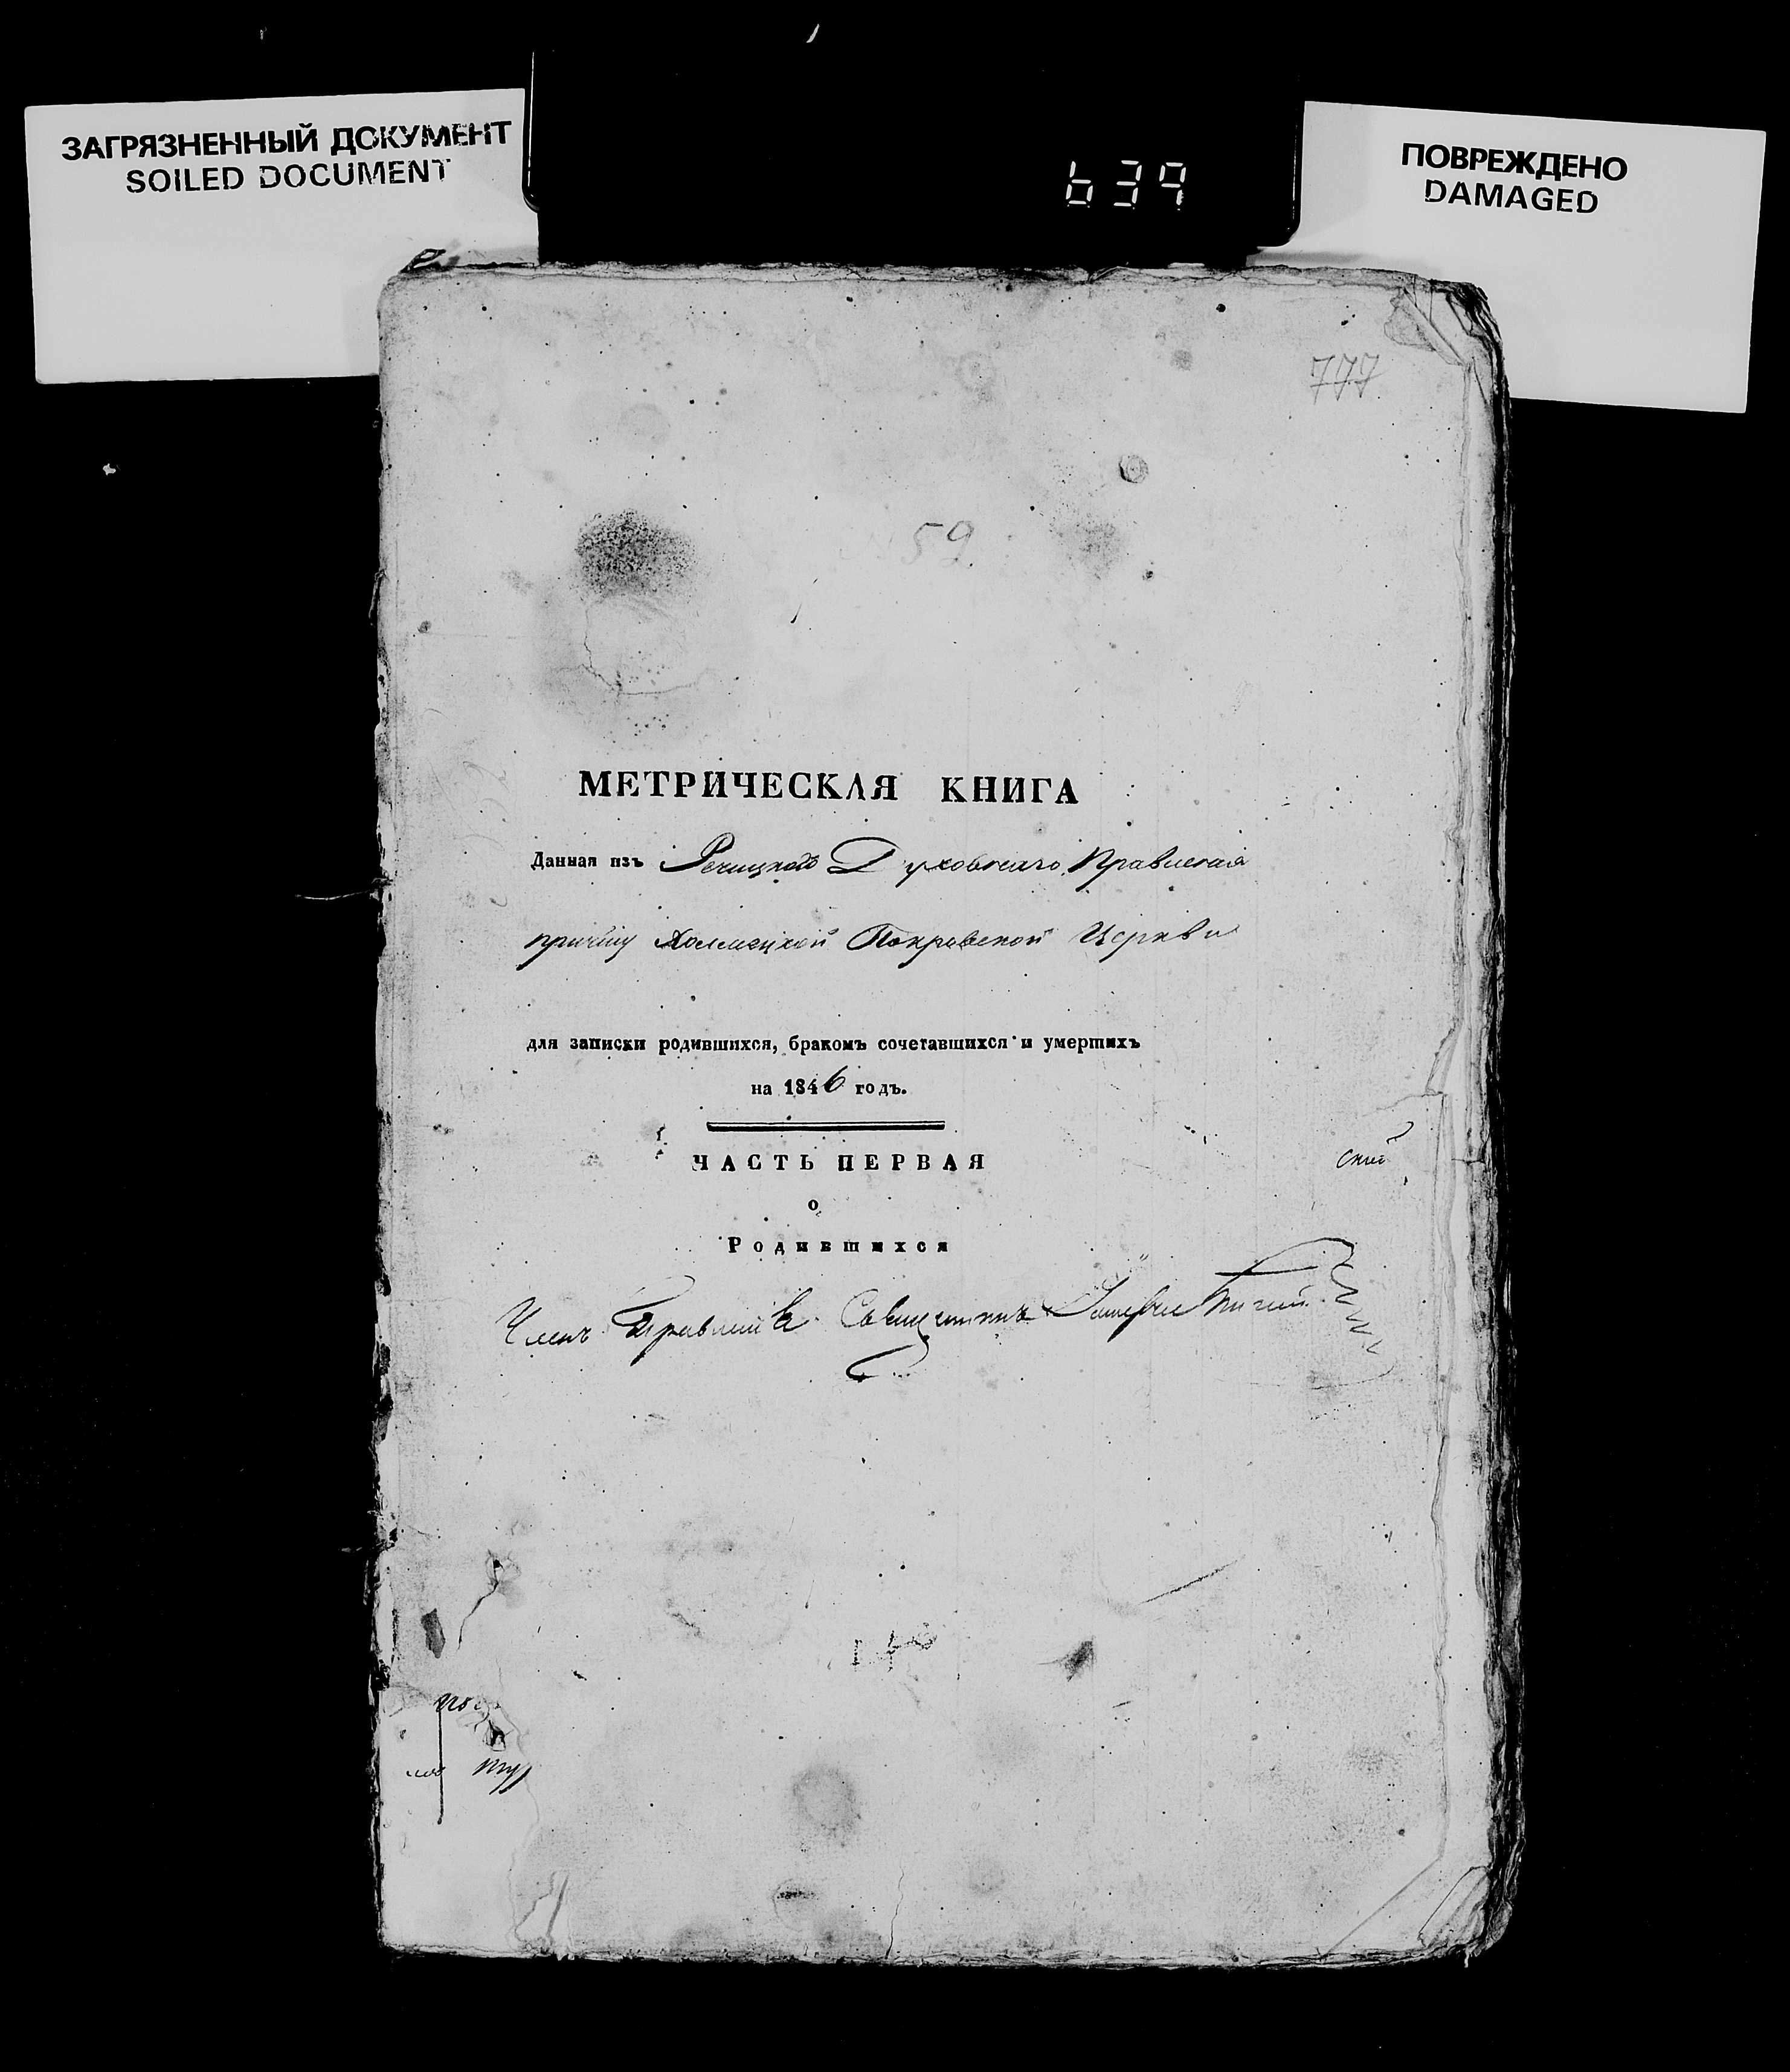 ЗАГРЯЗНЕННЫЙ ДОКУМЕНТ
SOILED DOCUMENT
639
ПОВРЕЖДЕНО
DAMAGED
777
59
МЕТРИЧЕСКАЯ КНИГА
Данная изъ Речицкаго Духовнаго Правленія
причту Холмецкой Покровской Церкви
для записки родившихся, бракомъ сочетавшихся и умершихъ
на 1846 годъ.
ЧАСТЬ ПЕРВАЯ
о
Родившихся
скій
Членъ Правленія Священникъ